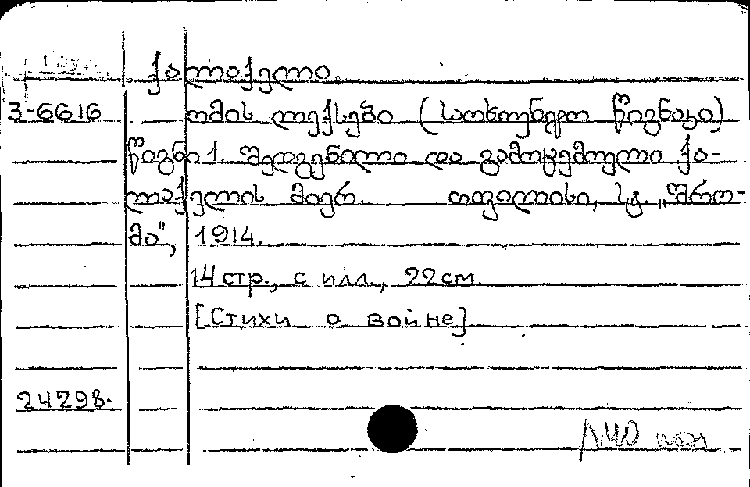 ქალაქელი.
3-6616 ომის ლექსები (სახუმარო წიგნაკი)
წიგნი 1. შედგენილი და გამოცემული ქა-
ლაქელის მიერ. თფილისი, სტ. „შრო-
მა", 1914.
14 стр., с илл., 22 см.
[Стихи о войне]
24298.